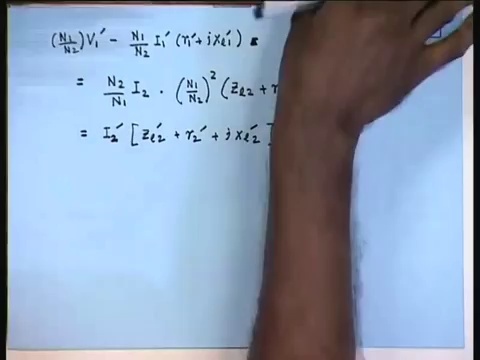 (N1/N2)V1′ − N1/N2 I1′ (r1′ + jxl1′)
= N2/N1 I2 · (N1/N2)² (Zl2 +
= I2′ [Zl2′ + r2′ + jxl2′]